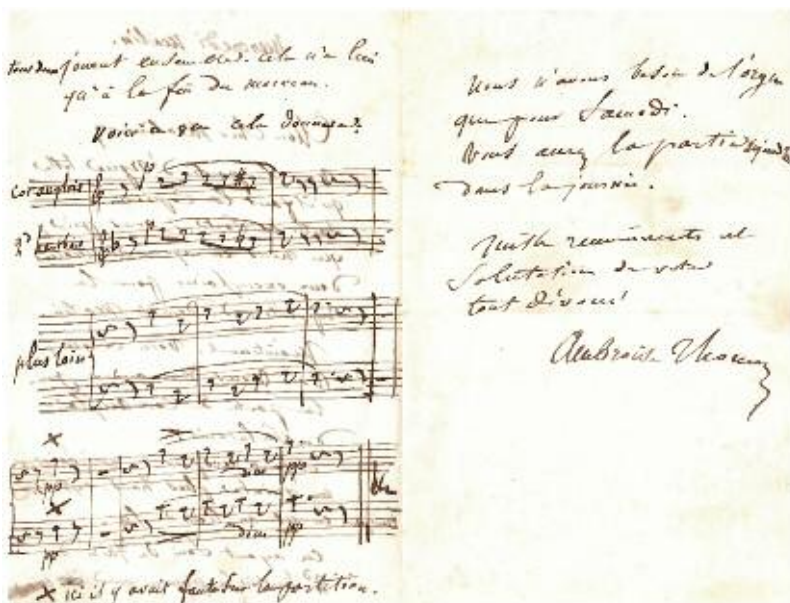 tous deux jouent ensemble. Cela n'a lieu
qu'à la fin du morceau.
Voici ce que cela donnera :
Cor anglais
p
plus loin
pp
dim
pp
pp
dim
pp
x ici il y avait faute sur la partition.
Nous n'avons besoin de l'orgue
que pour Samedi.
Vous aurez la partie
dans la journée.
Mille remerciements et
Salutations de votre
tout dévoué
Ambroise Thomas